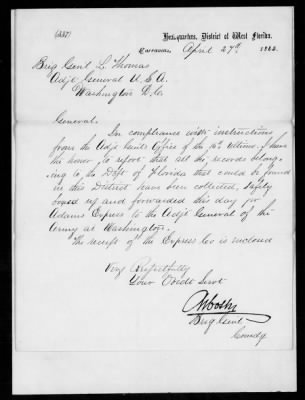 (337)
Headquarters, District of West Florida.
Barrancas, April 27th 1865.
Brig Genl L. Thomas
Adjt General U.S.A.
Washington D.C.
General.
In compliance with instructions
from the Adjt Genls Office of the 10th ultimo I have
the honor, to report that all the records belong-
ing to the Dept of Florida that could be found
in this District have been collected, safely
boxed up and forwarded this day per
Adams Express to the Adjt General of the
Army at Washington.
The receipt of the Express Co is inclosed
Very Respectfully
Your Obedt Servt
Asboth
Brig Genl
Comdg